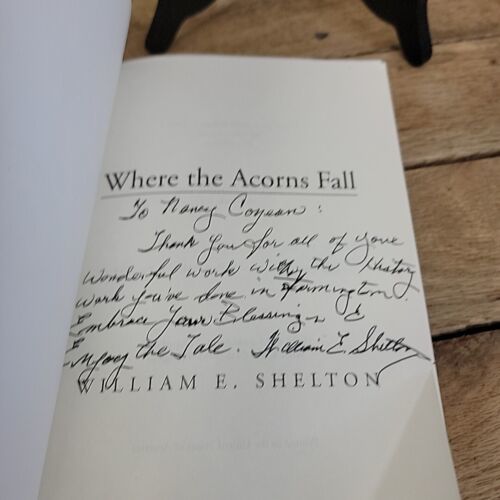 Where the Acorns Fall
To Nancy Coyean:
Thank you for all of your
wonderful work with the History
work you've done in Farmington.
Embrace Your Blessings &
Enjoy the Tale. William E. Shelton
WILLIAM E. SHELTON